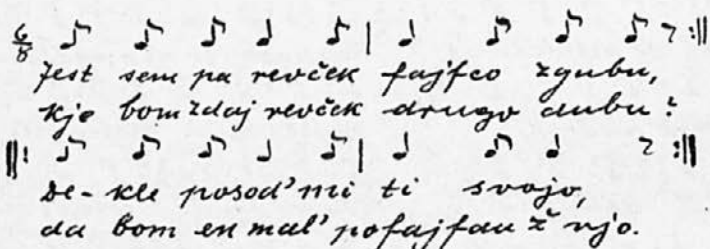 6/8
Jest sem pa revček fajfco zgubu,
Kje bom zdaj revček drugo dubu?
De-kle posod' mi ti svojo,
da bom en mal' pofajfau ž njo.